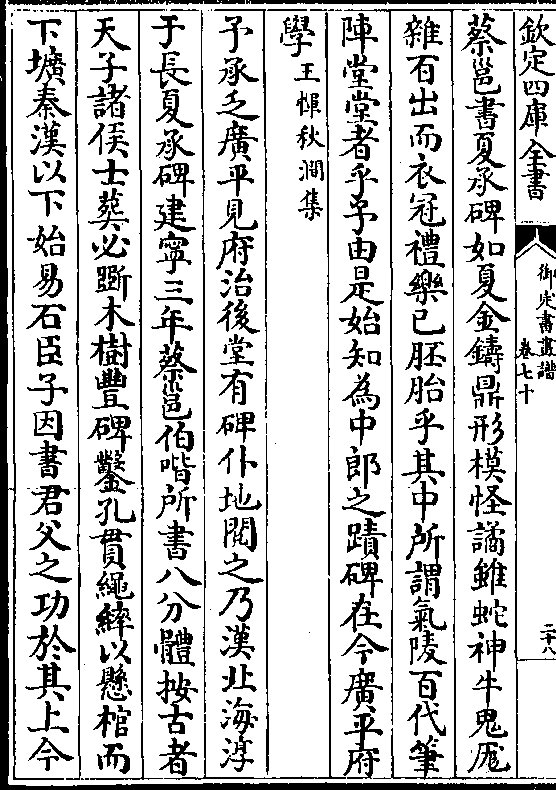 欽定四庫全書
御定書畫譜
卷七十
二十八
蔡邕書夏承碑如夏金鑄鼎形模怪譎雖蛇神牛鬼厖
雜百出而衣冠禮樂已胚胎乎其中所謂氣陵百代筆
陣堂堂者乎予由是始知為中郎之蹟碑在今廣平府
學王惲秋澗集
予承乏廣平見府治後堂有碑仆地閱之乃漢北海淳
于長夏承碑建寧三年蔡邕伯喈所書八分體按古者
天子諸侯士葬必斲木樹豐碑鑿孔貫繩繂以懸棺而
下壙秦漢以下始易石臣子因書君父之功於其上今